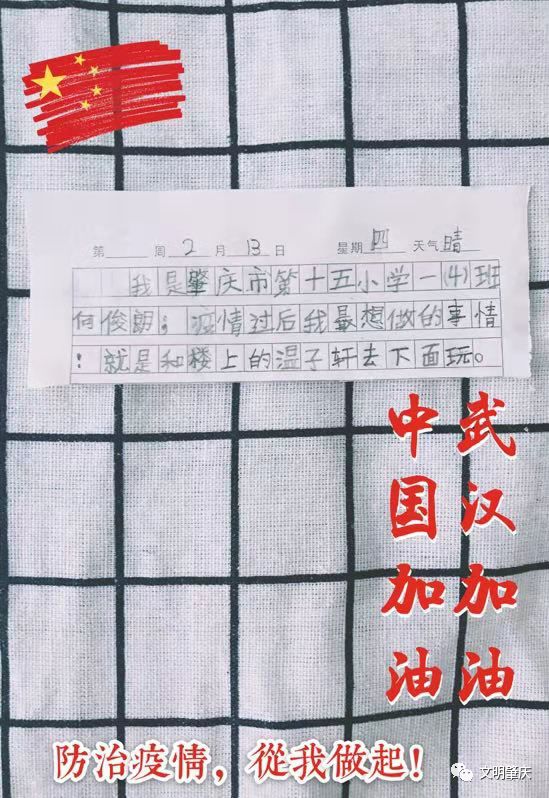 第 周 2 月 13 日 星期 四 天气 晴
我是肇庆市第十五小学一(4)班
何俊朗；疫情过后我最想做的事情
！就是和楼上的温子轩去下面玩。
武汉加油
中国加油
防治疫情，從我做起！
文明肇庆